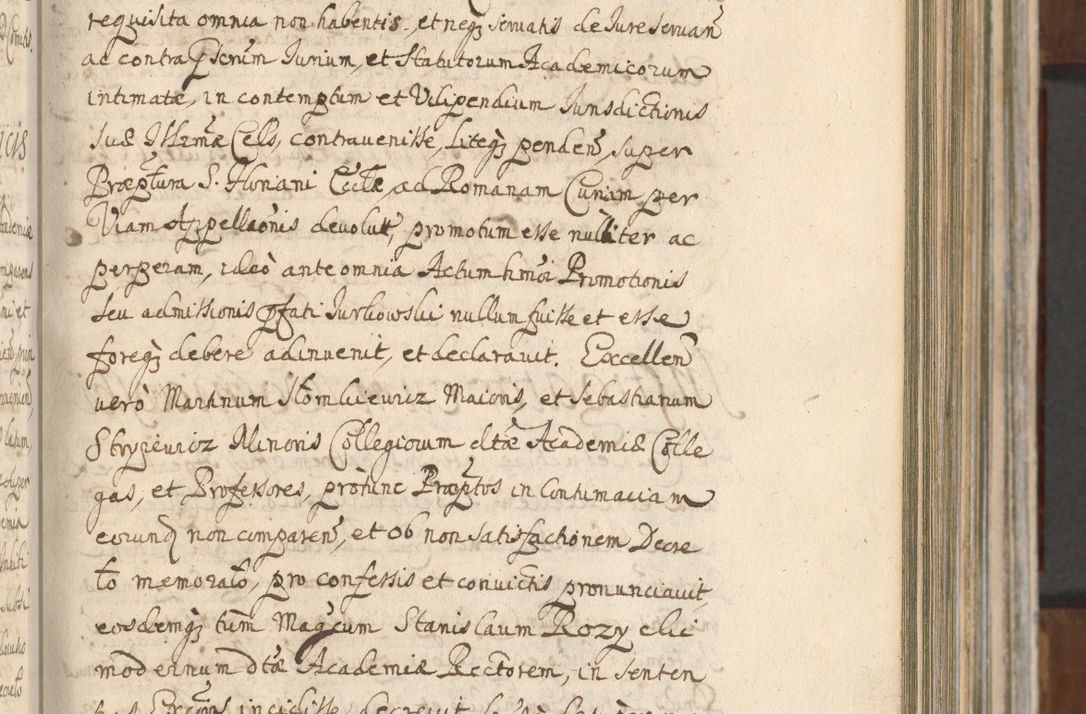 requisita omnia non habentis, et neq; servatis de Jure servan
ad contra Pscrum Jurium, et Statutorum Academicorum
intimatæ, in contemptum et Vilipendium Jurisdictionis
Suæ Illmæ Cels, contravenisse, Liteq; penden, super
Præptura S. Floriani Eccłæ, ad Romanam Curiam per
Viam Appellaonis devolut, promotum esse nulliter ac
perperam, ideò ante omnia Actum hmoi Promotionis
seu admissionis pfati Jurkowski nullum fuisse et esse
foreq; debere adinvenit, et declaravit. Excellen
verò Martinum Słomkiewicz Maioris, et Sebastianum
Stryiewicz Minoris Collegiorum dtæ Academiæ Colle
gas, et Professores, protunc Præptos in Contumaciam
eorund non comparen, et ob non satisfactionem Decre
to memorato, pro confessis et convictis pronunciavit,
eosdemq; tum Magcum Stanislaum Rozycki
modernum dtæ Academiæ Rectorem, in senten
incidisse decrevit